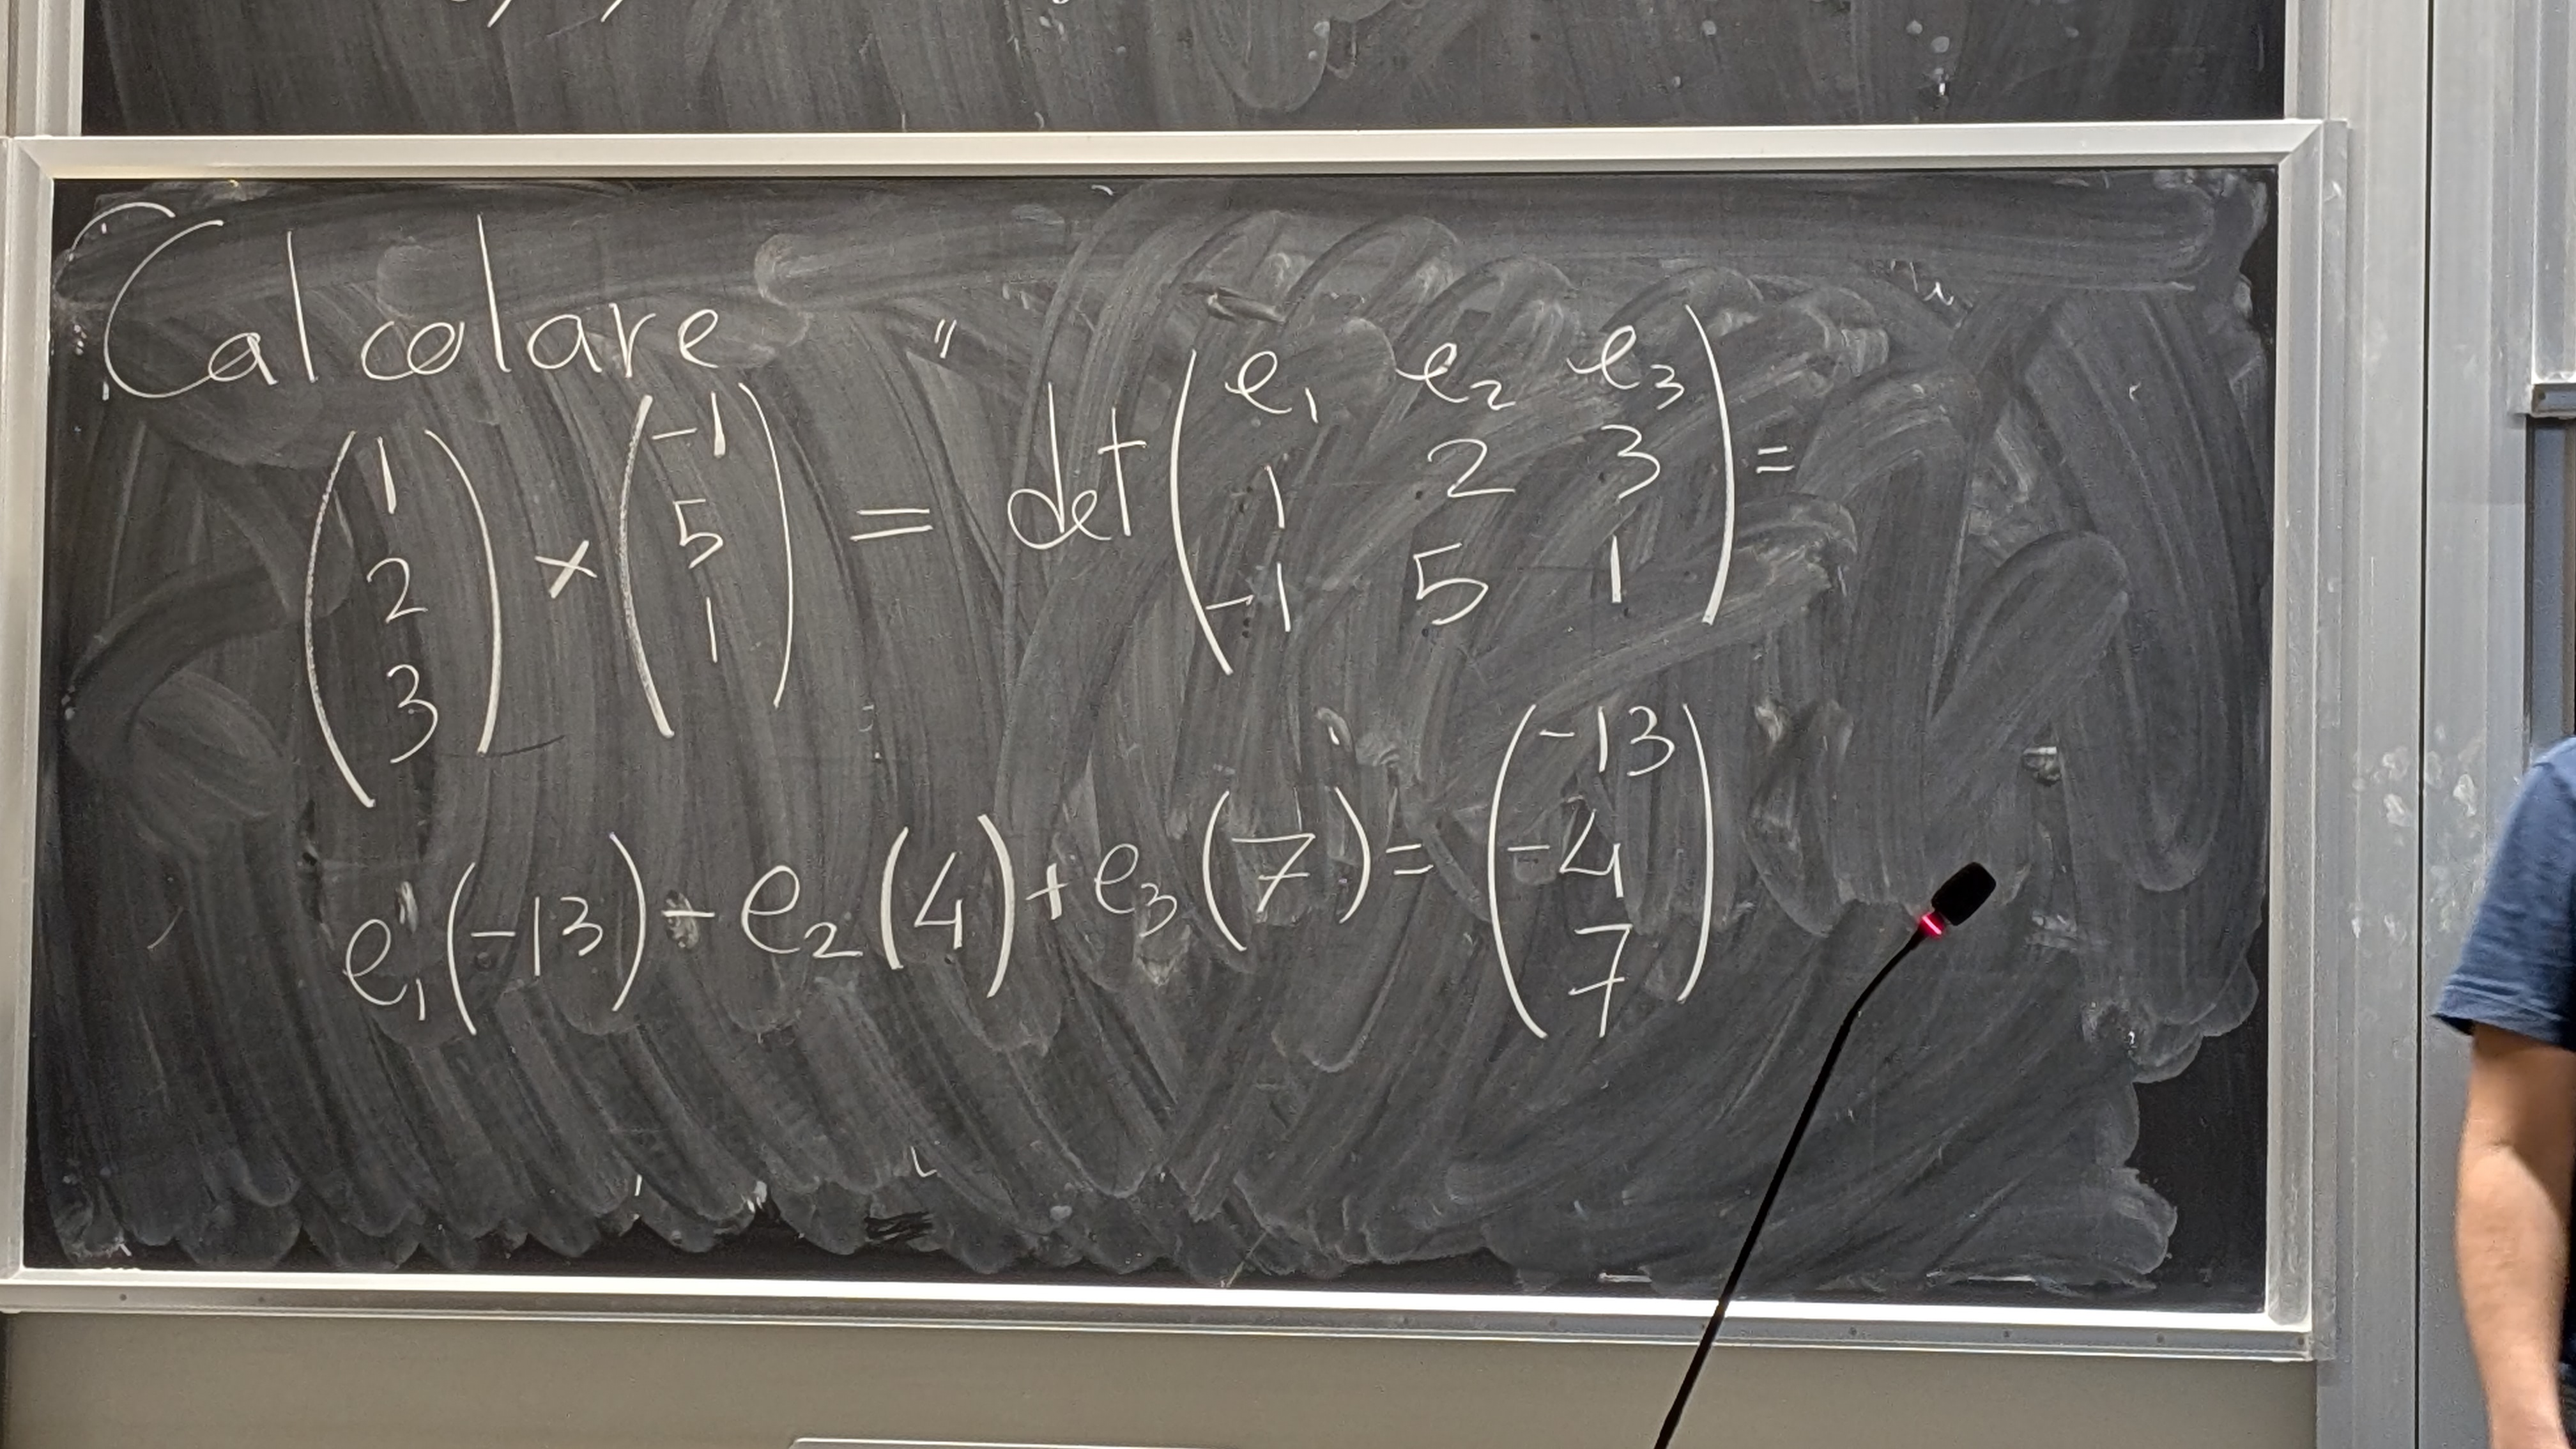 Calcolare
(1 2 3) × (-1 5 1) = " det (e₁ e₂ e₃ 1 2 3 -1 5 1) =
e₁(-13) - e₂(4) + e₃(7) = (-13 -4 7)